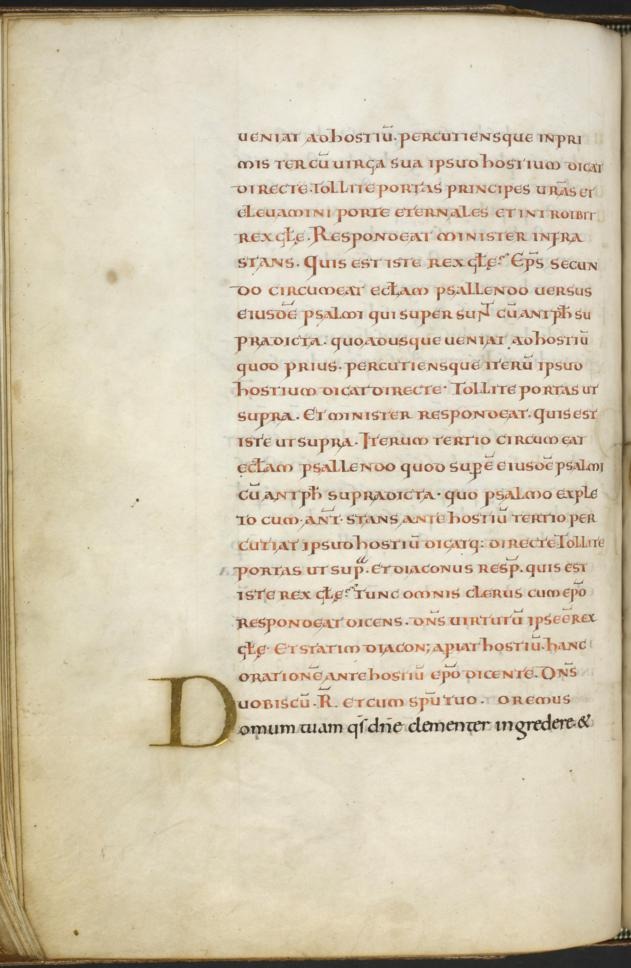 ueniat ad hostiū. percutiensque inpri
mis ter cū uirga sua ipsud hostium dicat
directe. Tollite portas principes ur̄as et
eleuamini porte eternales et introibit
rex gl̄e. Respondeat minister infra
stans. Quis est iste rex gl̄e? Ep̄s secun
do circumeat eccl̄am psallendo uersus
eiusdē psalmi qui super sun̄t cū antp̄h su
pradicta. quoadusque ueniat ad hostiū
quod prius. percutiensque iterū ipsud
hostium dicat directe. Tollite portas ut
supra. Et minister respondeat. quis est
iste ut supra. Iterum tertio circumeat
eccl̄am psallendo quod sup̄e eiusdē psalmi
cū antp̄h supradicta. quo psalmo exple
to cum. ant̄. stans ante hostiū tertio per
cutiat ipsud hostiū dicatq: directe Tollite
portas ut sup̄a. Et diaconus resp̄. quis est
iste rex gl̄e? Tunc omnis clerus cum ep̄o
respondeat dicens. Dn̄s uirtutū ipse ē rex
gl̄e. Et statim diacon; apiat hostiū. hanc
orationē ante hostiū ep̄o dicente. Dn̄s
uobiscū. R̄. Et cum sp̄u tuo. Oremus
Domum tuam qs̄ dn̄e clementer ingredere &